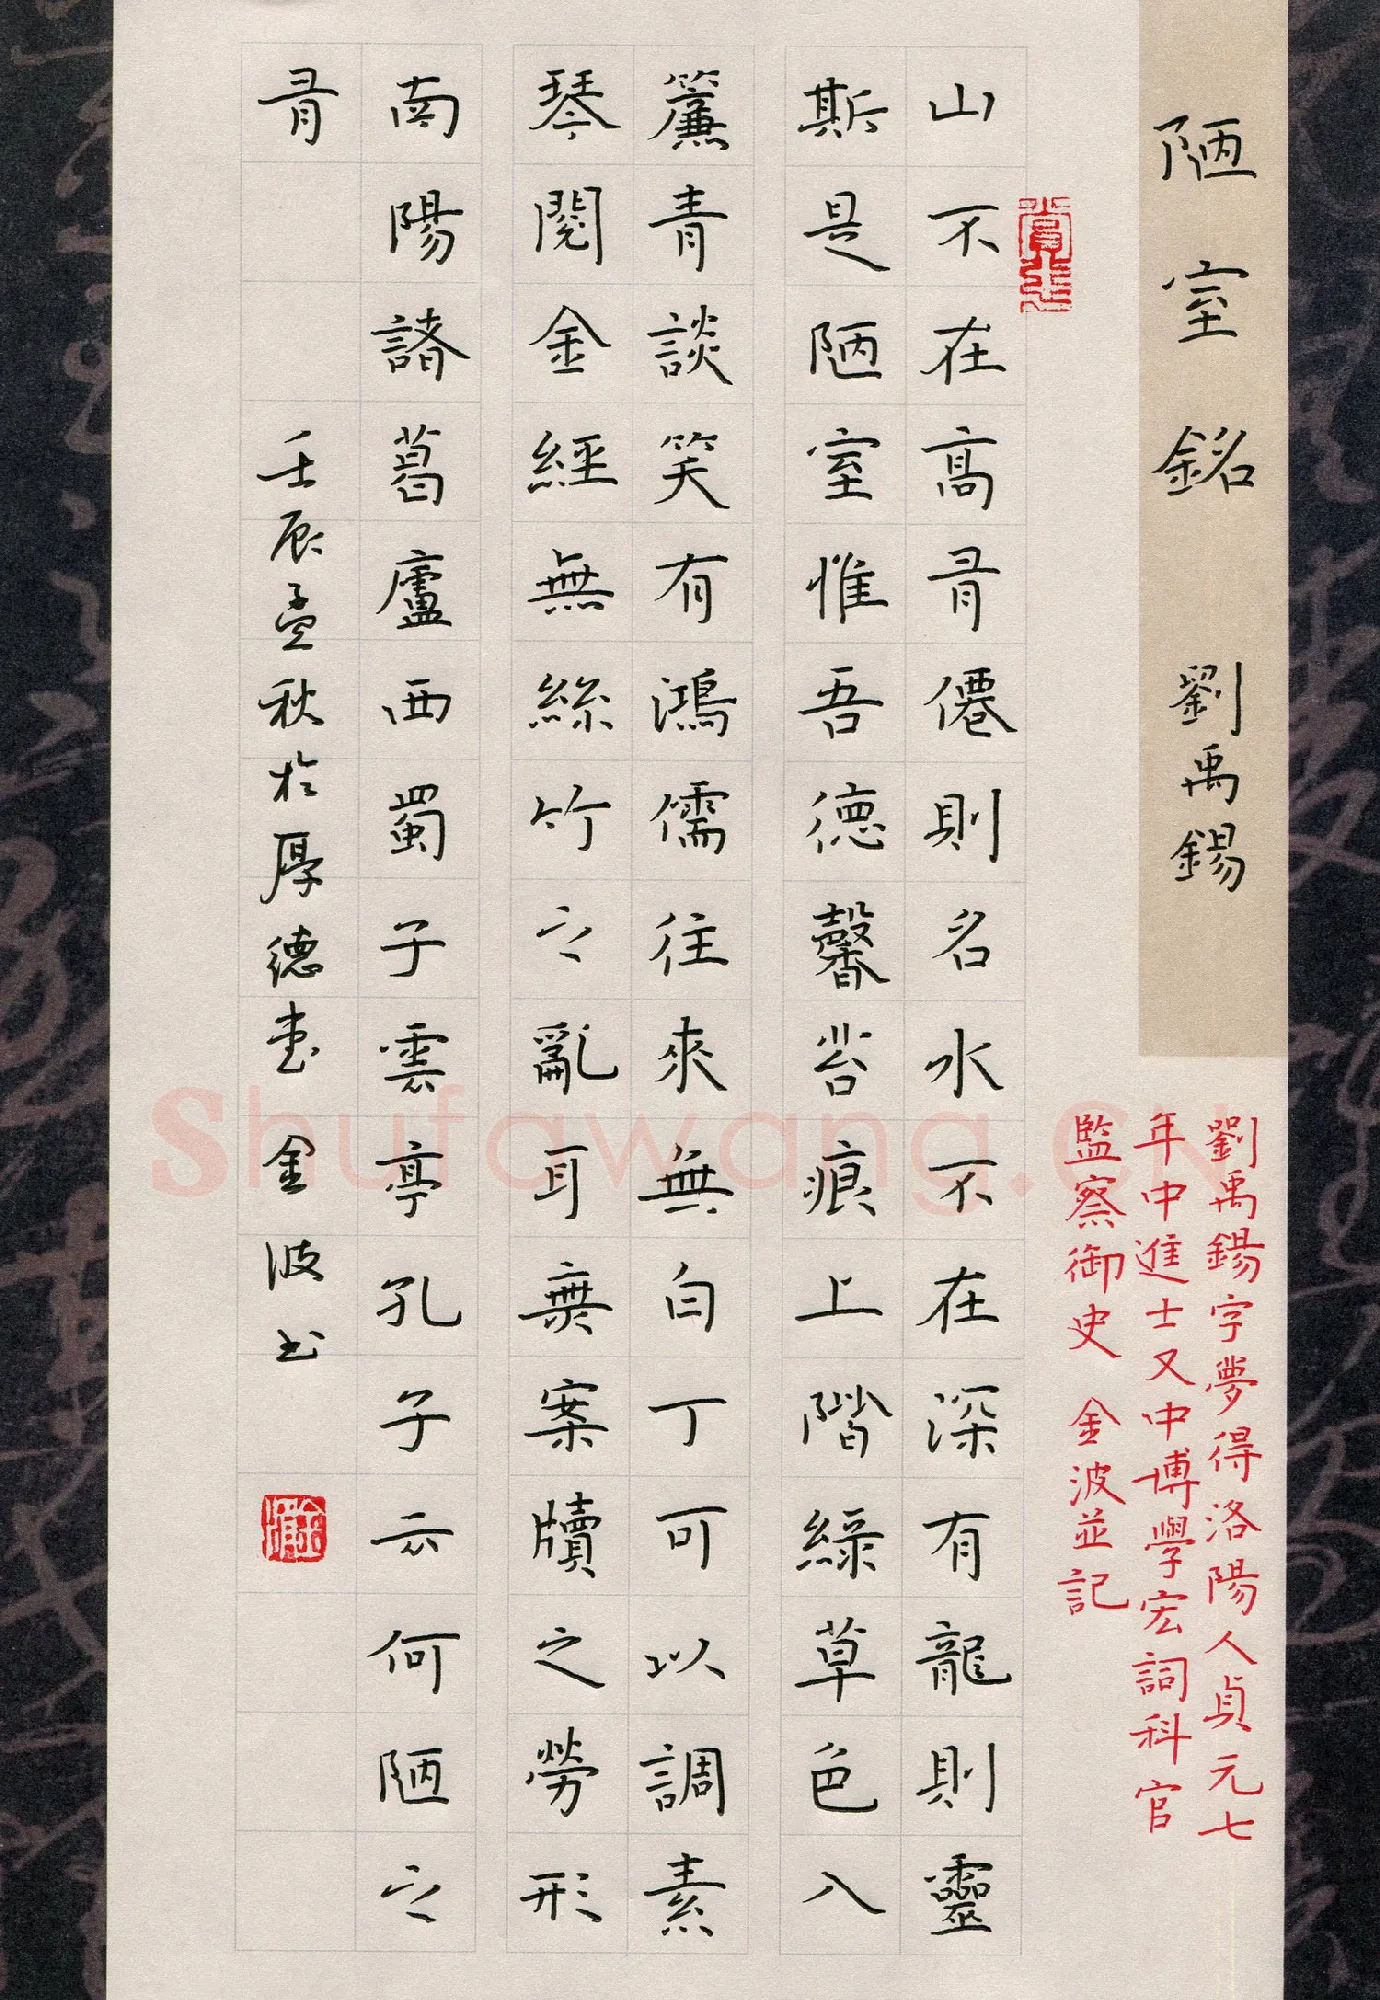 陋室銘 劉禹錫
劉禹錫字夢得洛陽人貞元七
年中進士又中博學宏詞科官
監察御史 金波並記
山不在高有僊則名水不在深有龍則靈
斯是陋室惟吾德馨苔痕上階綠草色入
簾青談笑有鴻儒往來無白丁可以調素
琴閱金經無絲竹之亂耳無案牘之勞形
南陽諸葛廬西蜀子雲亭孔子云何陋之
有 壬辰孟秋於厚德堂 金波书
Shufawang.CN